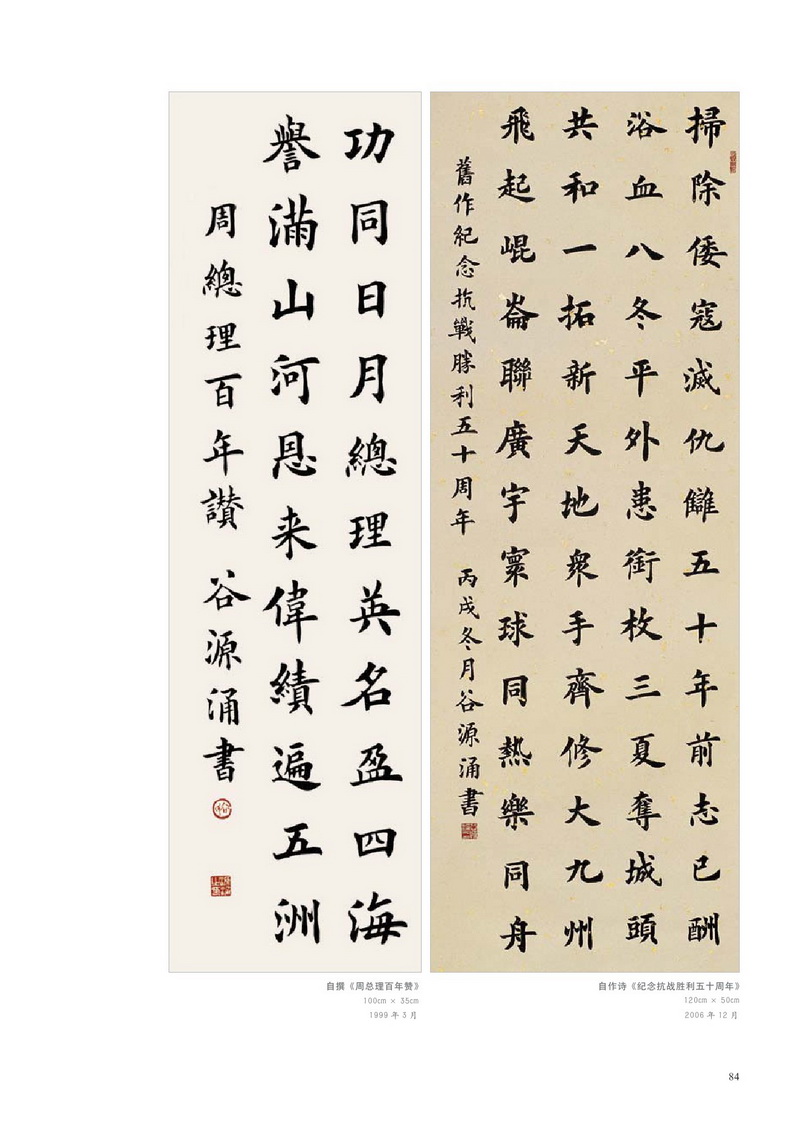 掃除倭寇滅仇讎五十年前志已酬
浴血八冬平外患銜枚三夏奪城頭
共和一拓新天地衆手齊修大九州
飛起崐崙聯廣宇寰球同熱樂同舟
舊作紀念抗戰勝利五十周年 丙戌冬月谷源涌書
功同日月總理英名盈四海
譽滿山河恩来偉績遍五洲
周總理百年讃 谷源涌書
自撰《周总理百年赞》
100cm × 35cm
1999 年 3 月
自作诗《纪念抗战胜利五十周年》
120cm × 50cm
2006 年 12 月
84